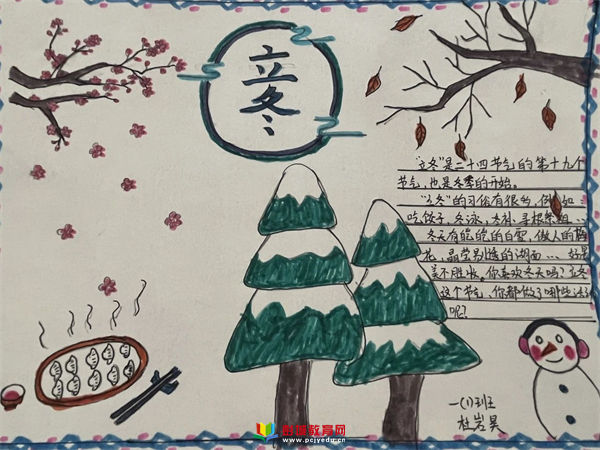 立冬
"立冬"是二十四节气的第十九个
节气,也是冬季的开始。
"立冬"的习俗有很多,例如
吃饺子、冬泳、冬补、寻根祭祖…
冬天有皑皑的白雪,傲人的梅
花,晶莹剔透的湖面……好是
美不胜收。你喜欢冬天吗?立冬
这个节气,你都做了哪些活
呢?
一(1)班
杜岩昊
教育网
www.pcjyedu.cn